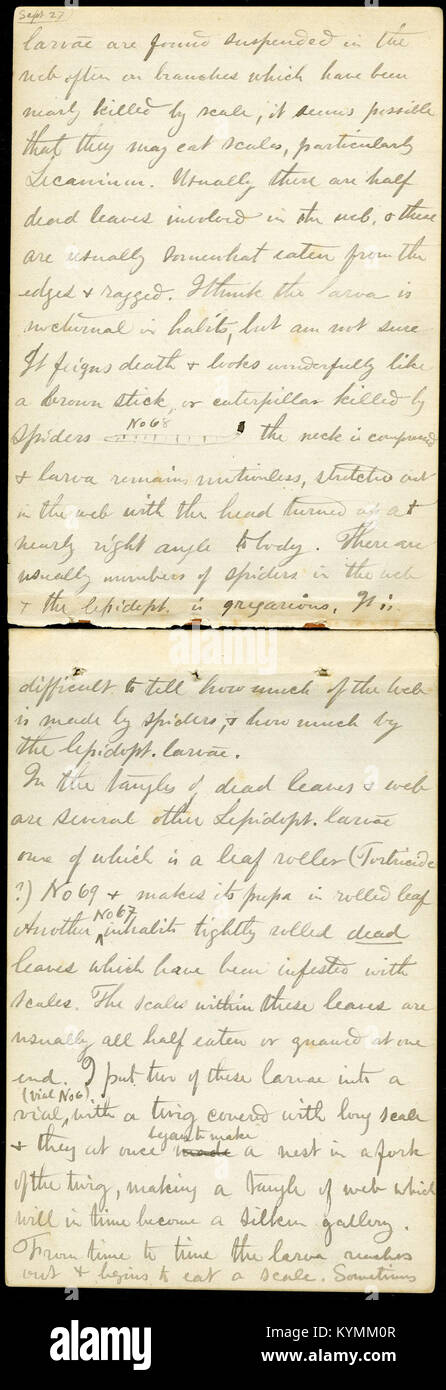 Sept 27
larvae are found suspended in the
web often on branches which have been
nearly killed by scale, it seems possible
that they may eat scales, particularly
Lecanium. Usually there are half
dead leaves involved in the web, & these
are usually somewhat eaten from the
edges & ragged. I think the larva is
nocturnal in habits, but am not sure
It feigns death & looks wonderfully like
a brown stick, or caterpillar killed by
No 68
spiders the neck is compressed
& larva remains motionless, stretched out
in the web with the head turned up at
nearly right angle to body. There are
usually numbers of spiders in the web
& the lepidopt. is gregarious. It is
difficult to tell how much of the web
is made by spiders, & how much by
the lepidopt. larvae.
In the tangles of dead leaves & web
are several other Lepidopt. larvae
one of which is a leaf roller (Tortricidae
?) No 69 & makes its pupa in rolled leaf
No 67
Another ^ inhabits tightly rolled dead
leaves which have been infested with
scales. The scales within these leaves are
usually all half eaten or gnawed at one
end. I put two of these larvae into a
(Vial No 6)
vial, with a twig covered with long scale
began to make
& they at once made a nest in a fork
of the twig, making a tangle of web which
will in time become a silken gallery.
From time to time the larva reaches
out & begins to eat a scale. Sometimes
alamy
alamy
Image ID: KYMM0R
www.alamy.com